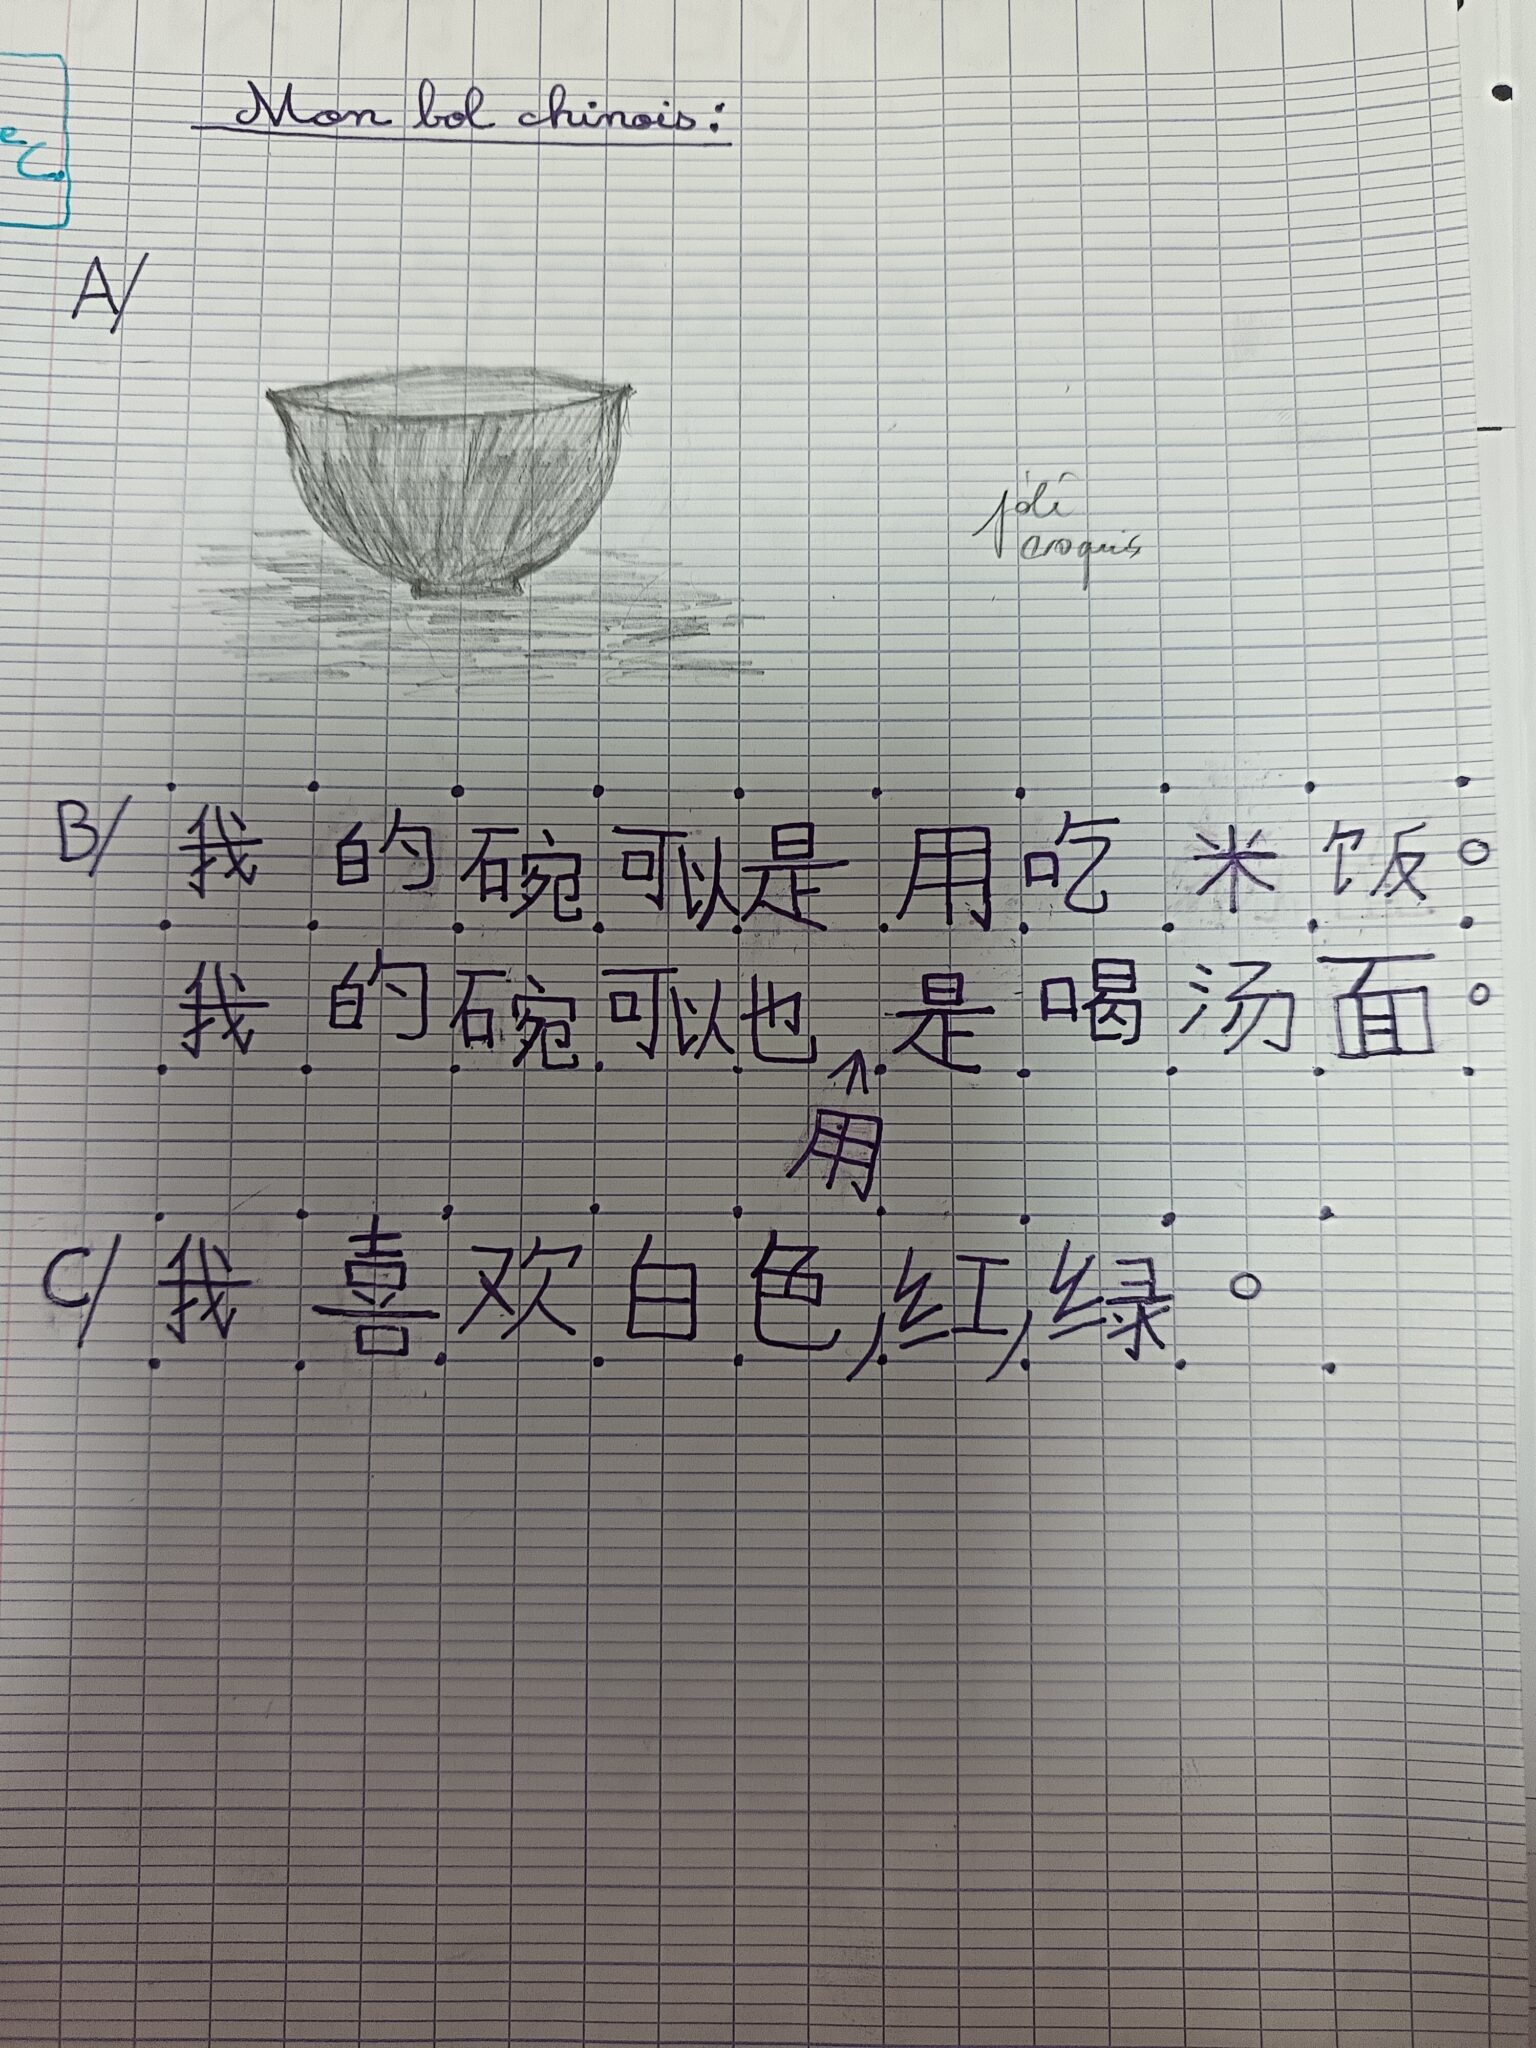 Mon bol chinois :
A/
joli
croquis
B/ 我的碗可以是用吃米饭。
我的碗可以也是喝汤面。
用
C/ 我喜欢白色,红,绿。